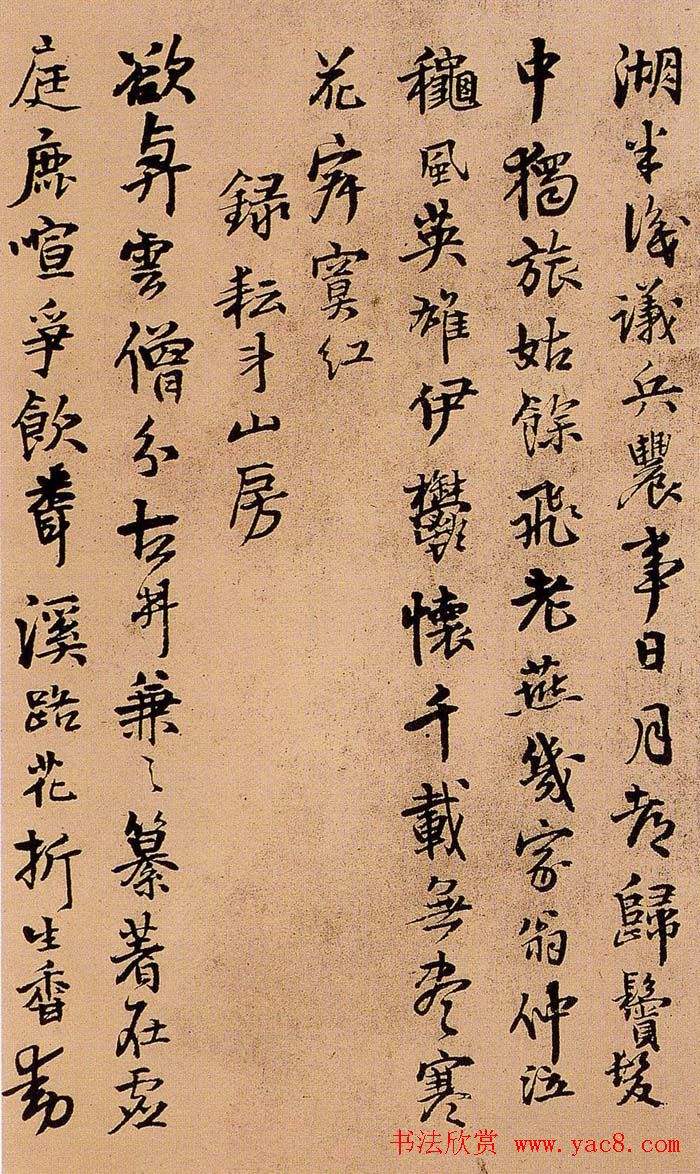 湖半議兵農事日月都歸鬢髮
中獨旅姑餘飛老燕幾家翁仲泣
龝風英雄伊鬱懷千載無盡寒
花寂寞紅
録耘斗山房
欲雲僧分古井兼纂著在虛
庭喧爭飲溪路花折生香動
书法欣赏 www.yac8.com